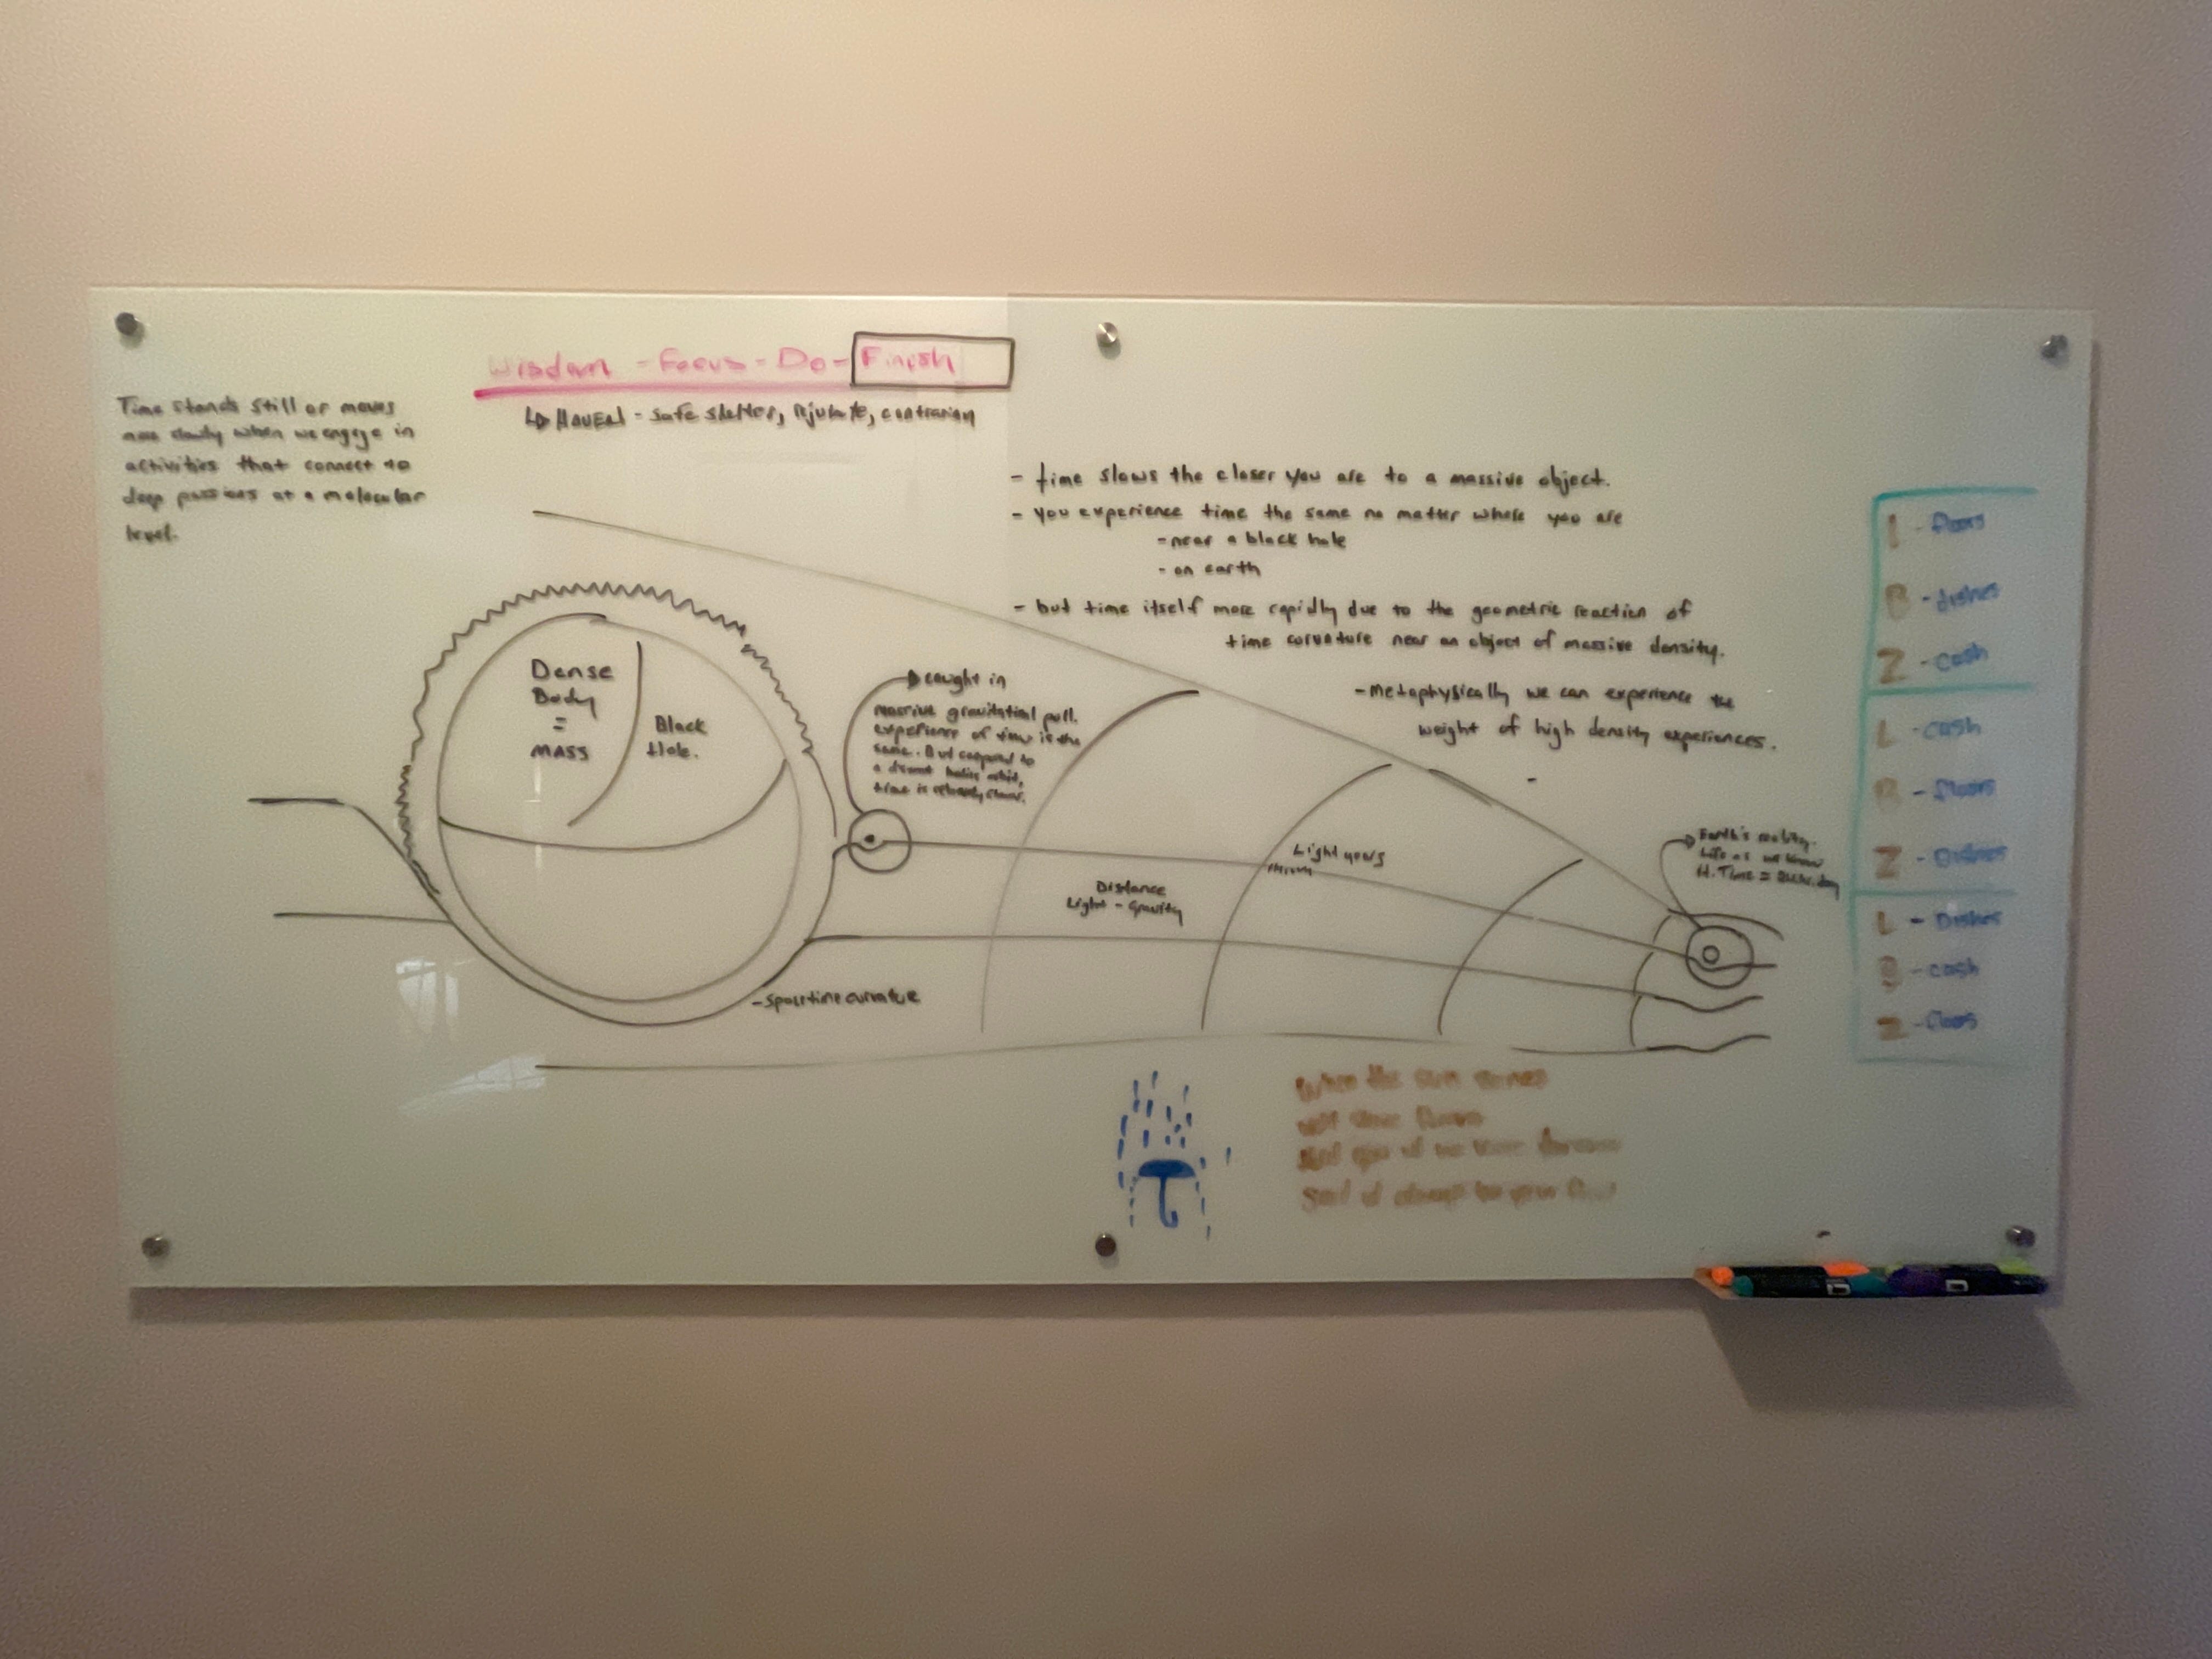 Wisdom - Focus - Do - Finish
HAVEN - safe shelter, contrarian
Time stands still or moves
more slowly when we engage in
activities that connect to
deep passions at a molecular
level.
- time slows the closer you are to a massive object.
- you experience time the same no matter where you are
- near a black hole
- on earth
- but time itself more rapidly due to the geometric reaction of
time curvature near an object of massive density.
- metaphysically we can experience the
weight of high density experiences.
-
Dense
Body
=
MASS
Black
Hole.
caught in
massive gravitational pull.
experience of time is the
same. But compared to
a distant
time is
Light years
Distance
Light - Gravity
- Spacetime curvature
Earth's reality.
Life as we know
it. Time =
- floors
B - dishes
Z - cash
L - cash
B - floors
Z - Dishes
L - Dishes
B - cash
Z - floors
When the sun